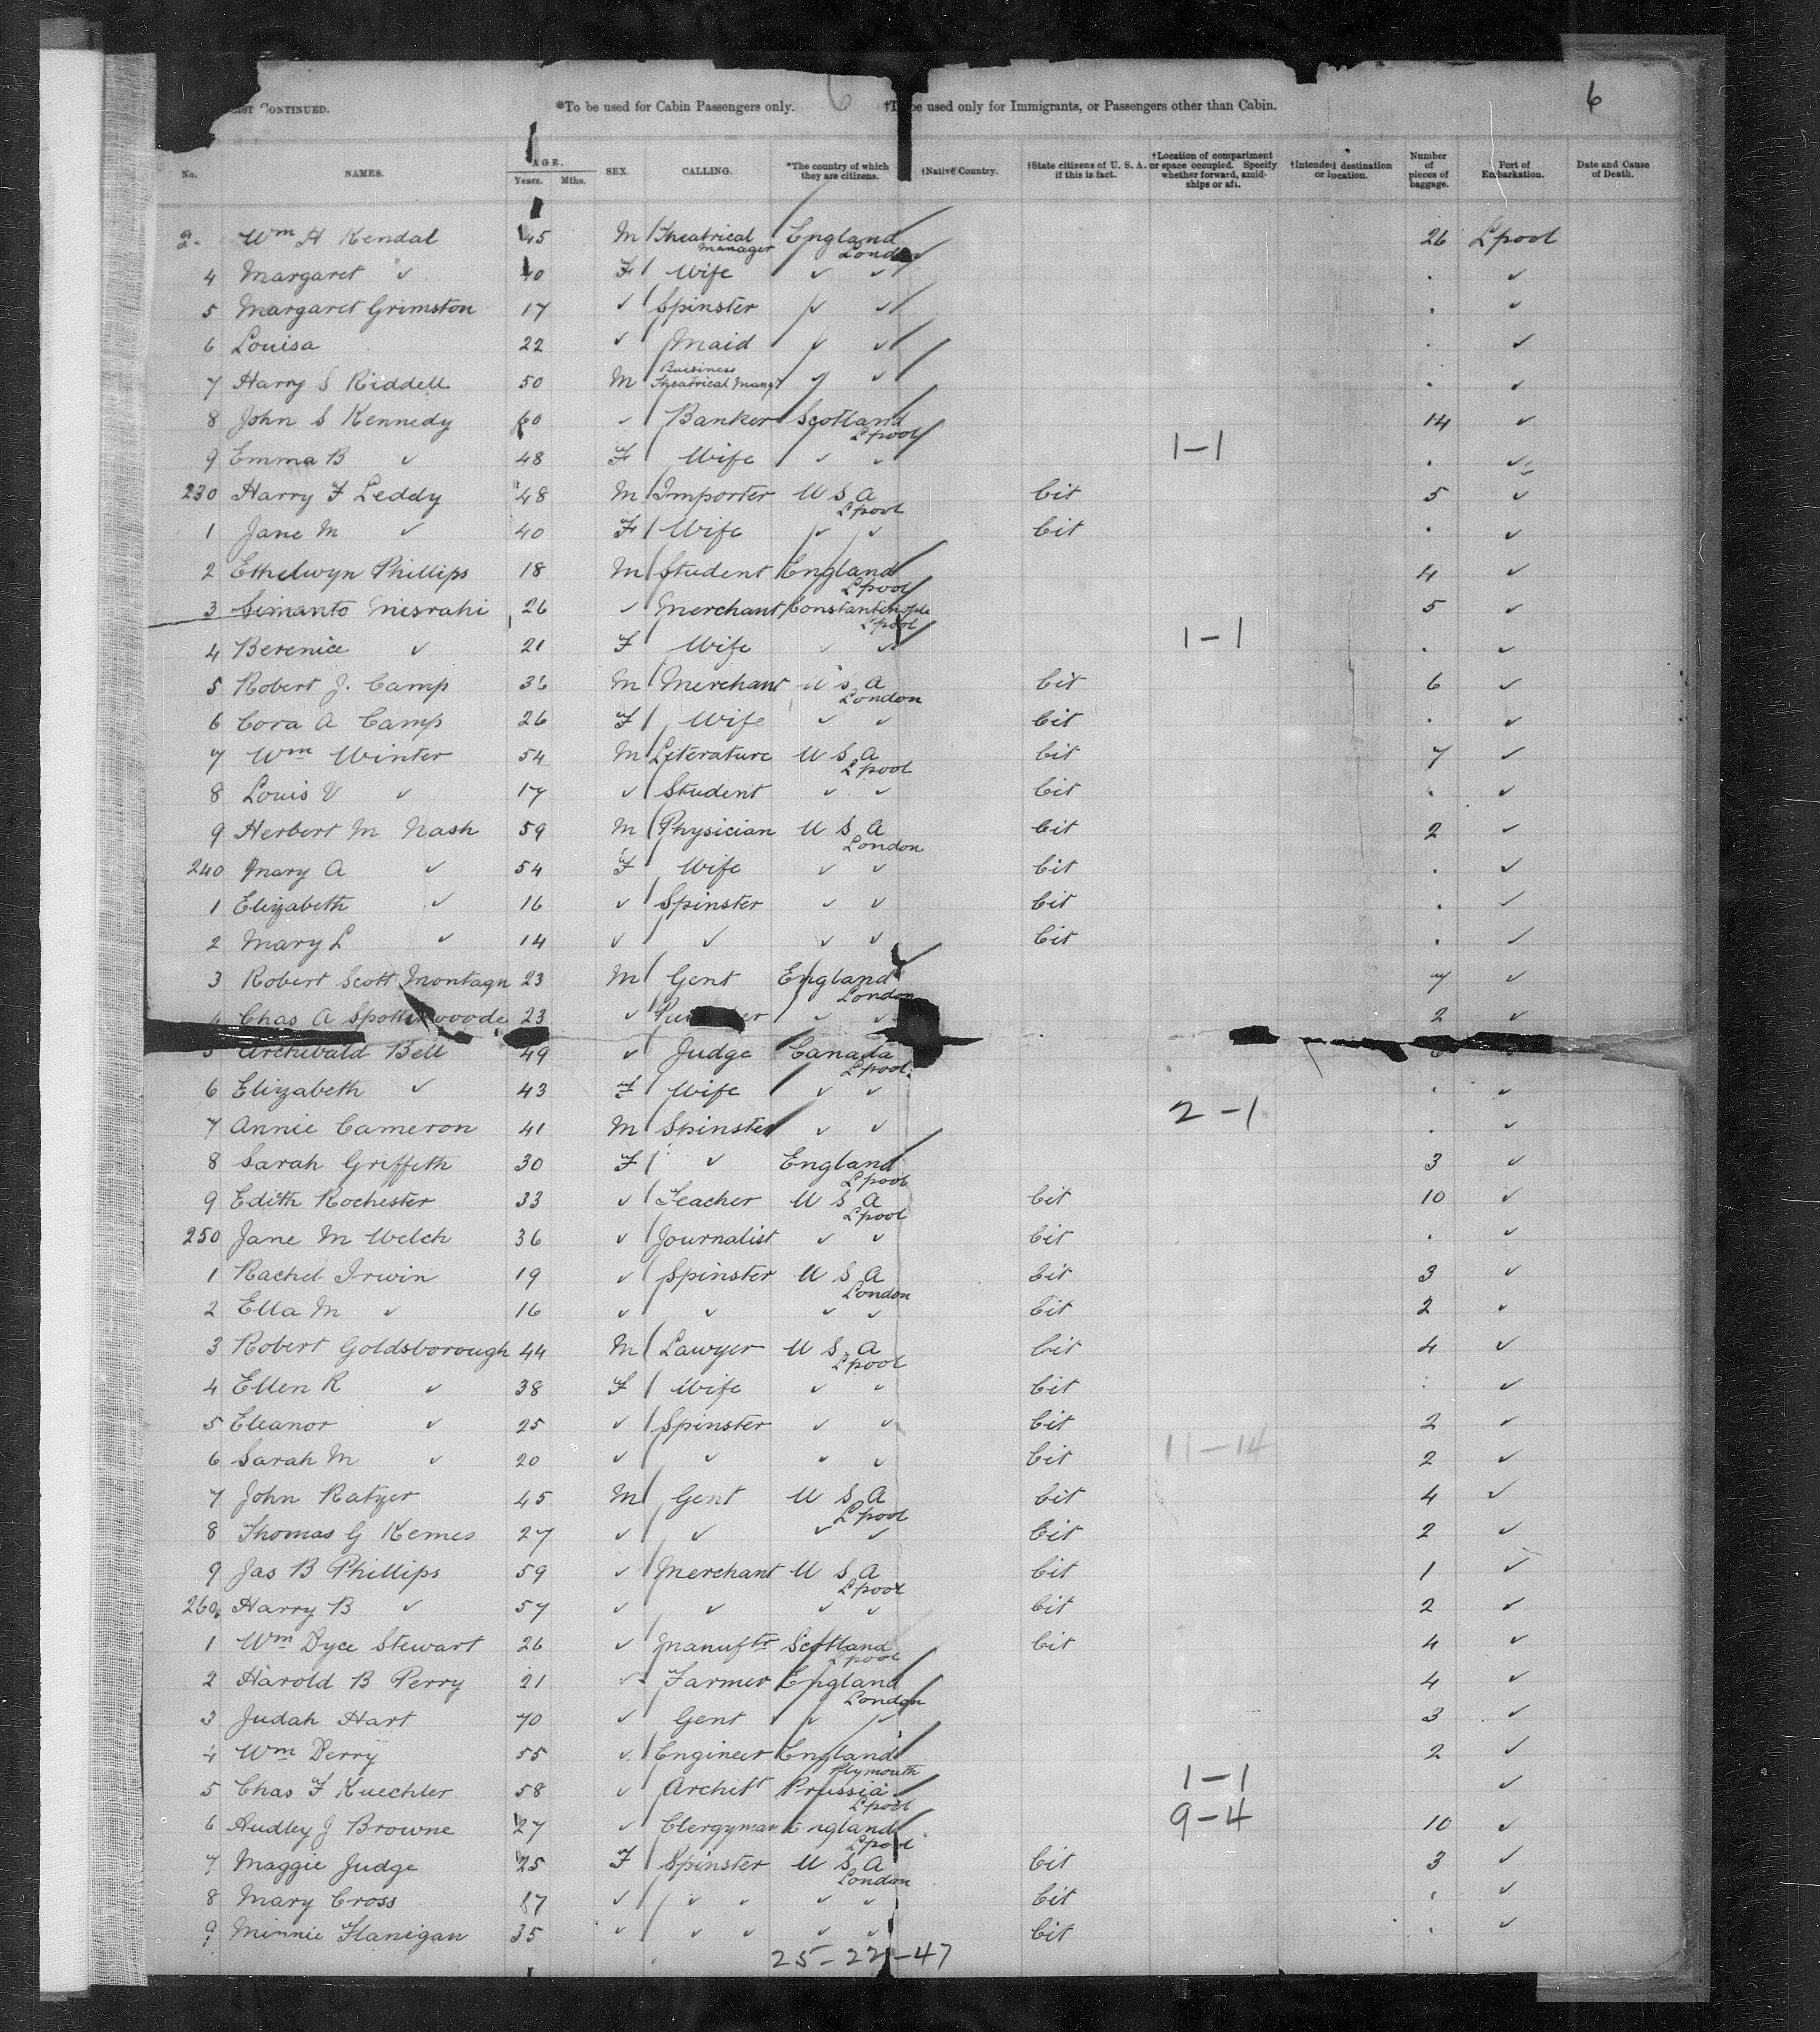 LIST CONTINUED. *To be used for Cabin Passengers only. 6 †To be used only for Immigrants, or Passengers other than Cabin. 6
No. NAMES. AGE. Years. Mths. SEX. CALLING. *The country of which they are citizens. †Native Country. †State citizens of U. S. A. if this is fact. †Location of compartment or space occupied. Specify whether forward, amidships or aft. †Intended destination or location. Number of pieces of baggage. Port of Embarkation. Date and Cause of Death.
2. Wm H Kendal 45 M Theatrical manager England London 26 Lpool
4 Margaret ✓ 40 F Wife ✓ ✓ . ✓
5 Margaret Grimston 17 ✓ Spinster ✓ ✓ . ✓
6 Louisa 22 ✓ Maid ✓ ✓ . ✓
7 Harry S Riddell 50 M Buisiness Theatrical Mangr ✓ ✓ . ✓
8 John S Kennedy 60 ✓ Banker Scotland Lpool 14 ✓
9 Emma B ✓ 48 F Wife ✓ ✓ 1-1 . ✓
230 Harry F Leddy 48 M Importer U S A Lpool Cit 5 ✓
1 Jane M ✓ 40 F Wife ✓ ✓ Cit . ✓
2 Ethelwyn Phillips 18 M Student England Lpool 4 ✓
3 Simanto Misrahi 26 ✓ Merchant Constantinople Lpool 5 ✓
4 Berenice ✓ 21 F Wife ✓ ✓ 1-1 . ✓
5 Robert J. Camp 36 M Merchant U S A London Cit 6 ✓
6 Cora A Camp 26 F Wife ✓ ✓ Cit . ✓
7 Wm Winter 54 M Literature U S A Lpool Cit 7 ✓
8 Louis V ✓ 17 ✓ Student ✓ ✓ Cit . ✓
9 Herbert M Nash 59 M Physician U S A London Cit 2 ✓
240 Mary A ✓ 54 F Wife ✓ ✓ Cit . ✓
1 Elizabeth ✓ 16 ✓ Spinster ✓ ✓ Cit . ✓
2 Mary L ✓ 14 ✓ ✓ ✓ ✓ Cit . ✓
3 Robert Scott Montagu 23 M Gent England London 7 ✓
4 Chas A Spottiswoode 23 ✓ ✓ ✓ 2 ✓
5 Archibald Bell 49 ✓ Judge Canada Lpool
6 Elizabeth ✓ 43 F Wife ✓ ✓ . ✓
7 Annie Cameron 41 M Spinster ✓ ✓ 2-1 . ✓
8 Sarah Griffeth 30 F ✓ England Lpool 3 ✓
9 Edith Rochester 33 ✓ Teacher U S A Lpool Cit 10 ✓
250 Jane M Welch 36 ✓ Journalist ✓ ✓ Cit . ✓
1 Rachel Irwin 19 ✓ Spinster U S A London Cit 3 ✓
2 Ella M ✓ 16 ✓ ✓ ✓ ✓ Cit 2 ✓
3 Robert Goldsborough 44 M Lawyer U S A Lpool Cit 4 ✓
4 Ellen R ✓ 38 F Wife ✓ ✓ Cit . ✓
5 Eleanor ✓ 25 ✓ Spinster ✓ ✓ Cit 2 ✓
6 Sarah M ✓ 20 ✓ ✓ ✓ ✓ Cit 11-14 2 ✓
7 John Ratzer 45 M Gent U S A Lpool Cit 4 ✓
8 Thomas G Kemes 27 ✓ ✓ ✓ ✓ Cit 2 ✓
9 Jas B Phillips 59 ✓ Merchant U S A Lpool Cit 1 ✓
260 Harry B ✓ 57 ✓ ✓ ✓ ✓ Cit 2 ✓
1 Wm Dyce Stewart 26 ✓ Manuftr Scotland Lpool Cit 4 ✓
2 Harold B Perry 21 ✓ Farmer England London 4 ✓
3 Judah Hart 70 ✓ Gent ✓ ✓ 3 ✓
4 Wm Derry 55 ✓ Engineer England Plymouth 2 ✓
5 Chas F Kuechler 58 ✓ Archett Prussia Lpool 1-1 ✓
6 Audley J Browne 27 ✓ Clergyman England Lpool 9-4 10 ✓
7 Maggie Judge 25 F Spinster U S A London Cit 3 ✓
8 Mary Cross 17 ✓ ✓ ✓ ✓ ✓ Cit . ✓
9 Minnie Flanigan 35 ✓ ✓ ✓ ✓ ✓ Cit . ✓
25-22-47